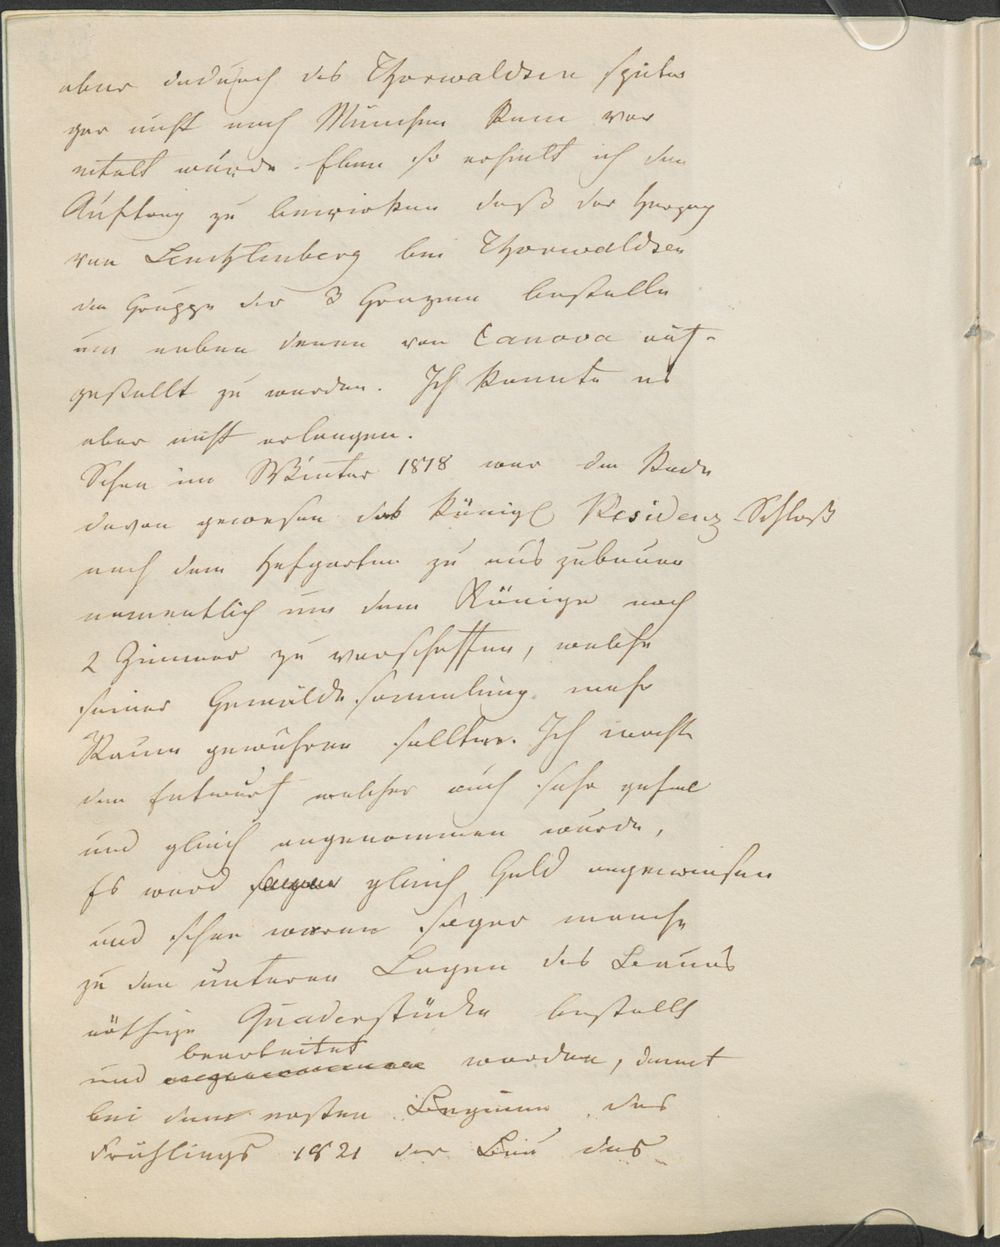 aber dadurch das Thorwaldsen später
gar nicht nach München kam ver
eitelt wurde. Eben so erhielt ich den
Auftrag zu bewirken daß der Herzog
von Leuchtenberg bei Thorwaldsen
die Gruppe der 3 Grazien bestelle
um neben denen von Canova auf-
gestellt zu werden. Ich konnte es
aber nicht erlangen.
Schon im Winter 1818 war die Rede
davon gewesen das Königl Residenz-Schloß
nach dem Hofgarten zu aus zubauen
namentlich um dem Könige noch
2 Zimmer zu verschaffen, welche
seiner Gemälde sammlung mehr
Raum gewähren sollten. Ich machte
den Entwurf welcher auch sehr gefiel
und gleich angenommen wurde,
Es ward gleich Geld angewiesen
und schon waren sogar manche
zu den unteren Lagen des Baues
nöthige Quaderstücke bestellt
und bearbeitet worden, damit
bei dem ersten Beginne des
Frühlings 1821 der Bau des